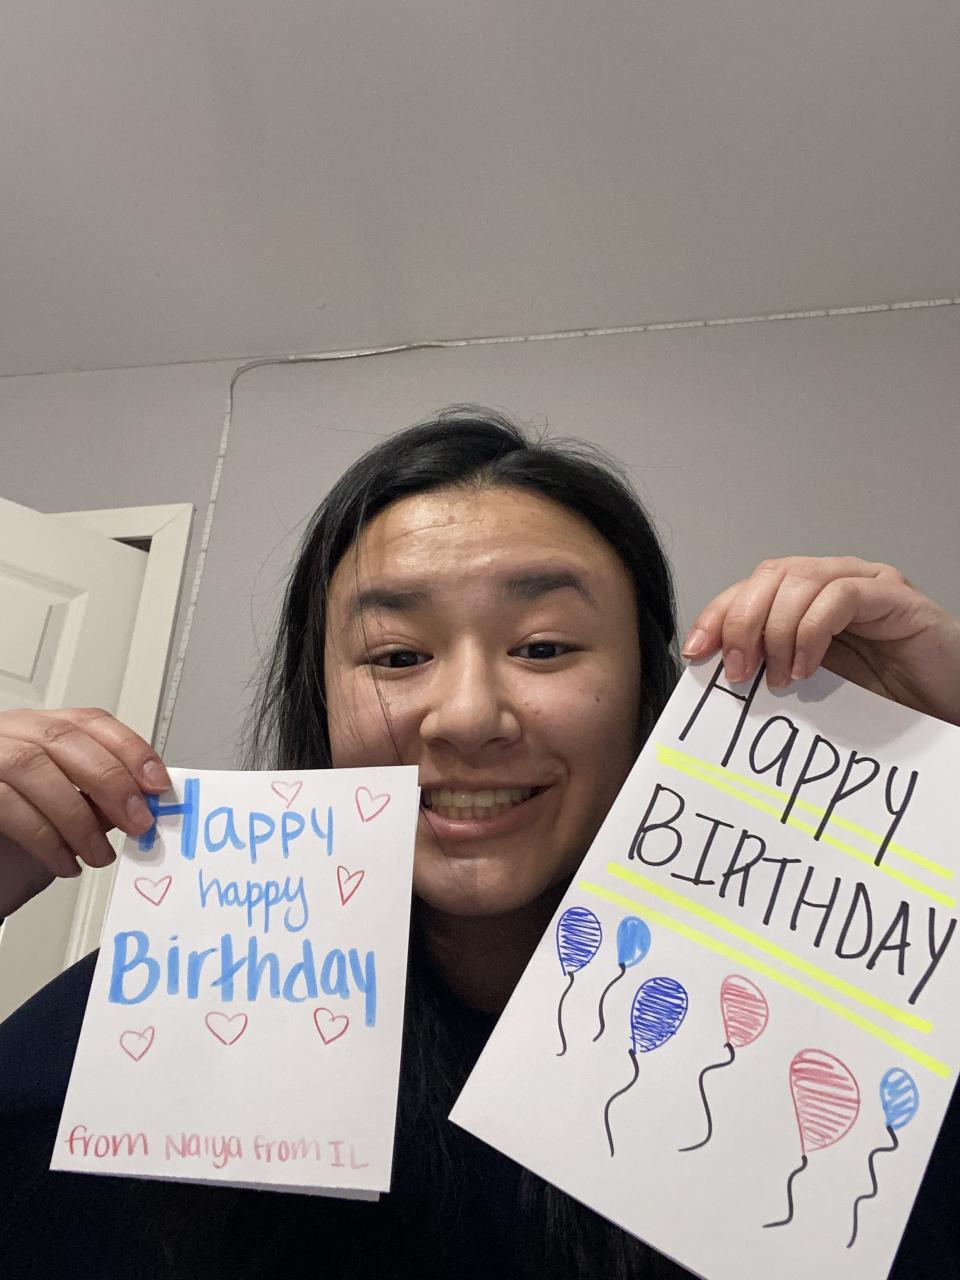 Happy
happy
Birthday
from Naiya from IL
Happy
BIRTHDAY